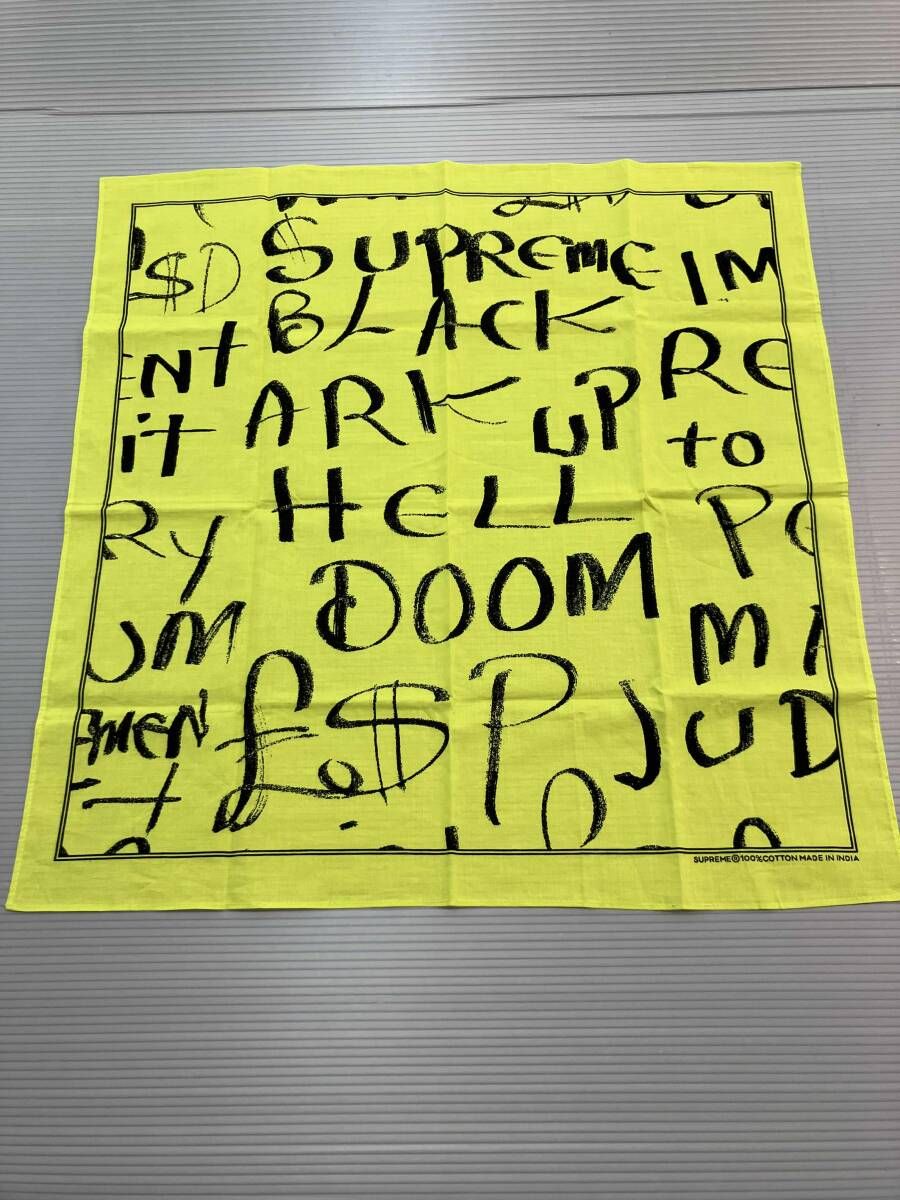 $D $UPREME IM
ENt BLACK
it ARK UP RE
HELL to
RY DOOM PE
UM £.$ P M
EMEN JUD
t
SUPREME®100%COTTON MADE IN INDIA